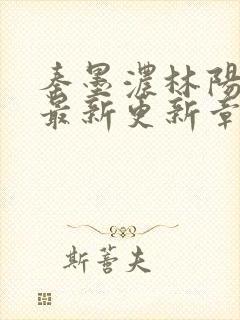 秦墨濃林陽
最新更新章
斯蕾夫